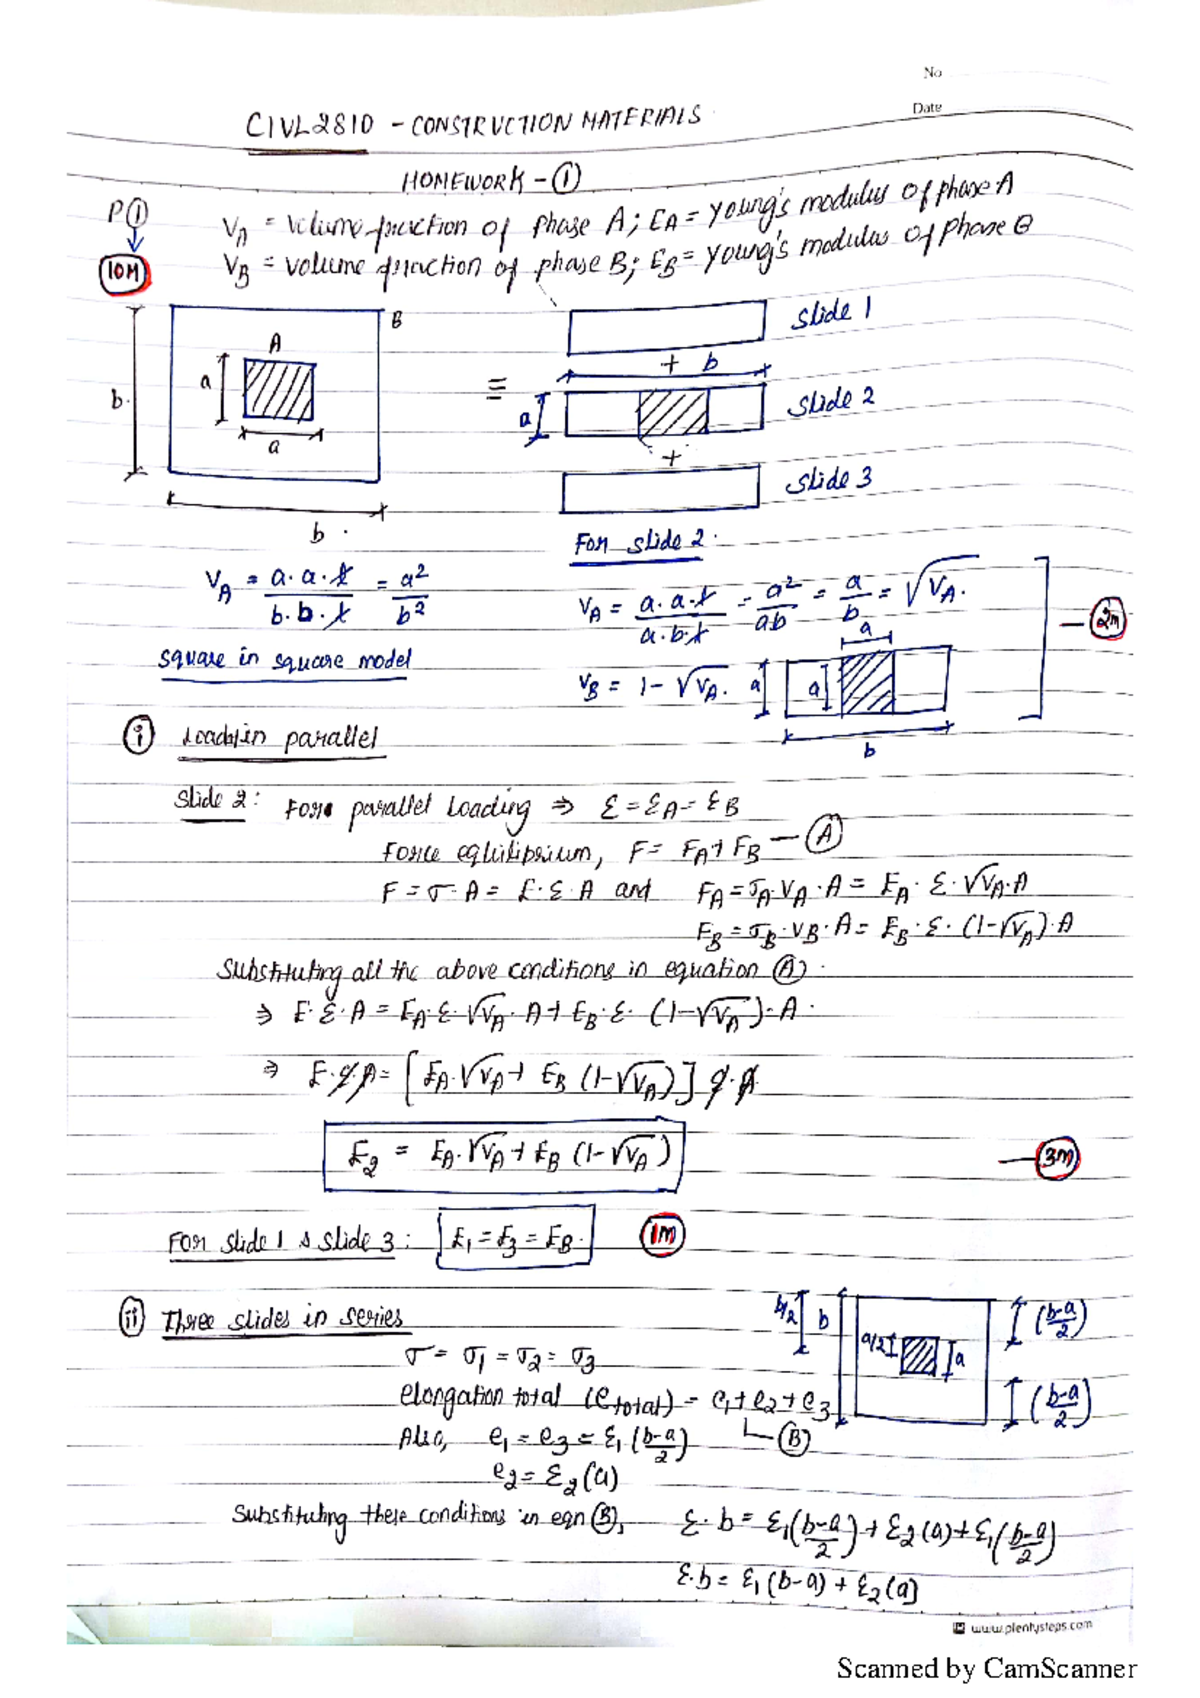 No
Date
CIVL2810 - CONSTRUCTION MATERIALS
HOMEWORK - ①
P①
10M
V_A = volume fraction of phase A; E_A = Young's modulus of phase A
V_B = volume fraction of phase B; E_B = Young's modulus of phase B
B
A
a
a
b
b
=
Slide 1
+ b
a
Slide 2
+
Slide 3
V_A = a·a·t / b·b·t = a² / b²
square in square model
For slide 2
V_A = a·a·t / a·b·t = a² / ab = a / b = √V_A.
V_B = 1 - √V_A.
a
a
a
b
2m
(i) Loading in parallel
Slide 2: For parallel loading ⇒ ε = ε_A = ε_B
Force equilibrium, F = F_A + F_B — (A)
F = σ·A = E·ε·A and F_A = σ_A·V_A·A = E_A·ε·√V_A·A
F_B = σ_B·V_B·A = E_B·ε·(1-√V_A)·A
Substituting all the above conditions in equation (A)
⇒ E·ε·A = E_A·ε·√V_A·A + E_B·ε·(1-√V_A)·A
⇒ E·ε·A = [E_A·√V_A + E_B (1-√V_A)] ε·A
E_2 = E_A·√V_A + E_B (1-√V_A)
3m
For slide 1 & slide 3: E_1 = E_3 = E_B.
1m
(ii) Three slides in series
b/2
b
a/2
a
(b-a / 2)
(b-a / 2)
σ = σ_1 = σ_2 = σ_3
elongation total (e_total) = e_1 + e_2 + e_3
(B)
Also, e_1 = e_3 = ε_1 (b-a / 2)
e_2 = ε_2 (a)
Substituting these conditions in eqn (B), ε·b = ε_1 (b-a / 2) + ε_2 (a) + ε_1 (b-a / 2)
ε·b = ε_1 (b-a) + ε_2 (a)
www.plentysteps.com
Scanned by CamScanner